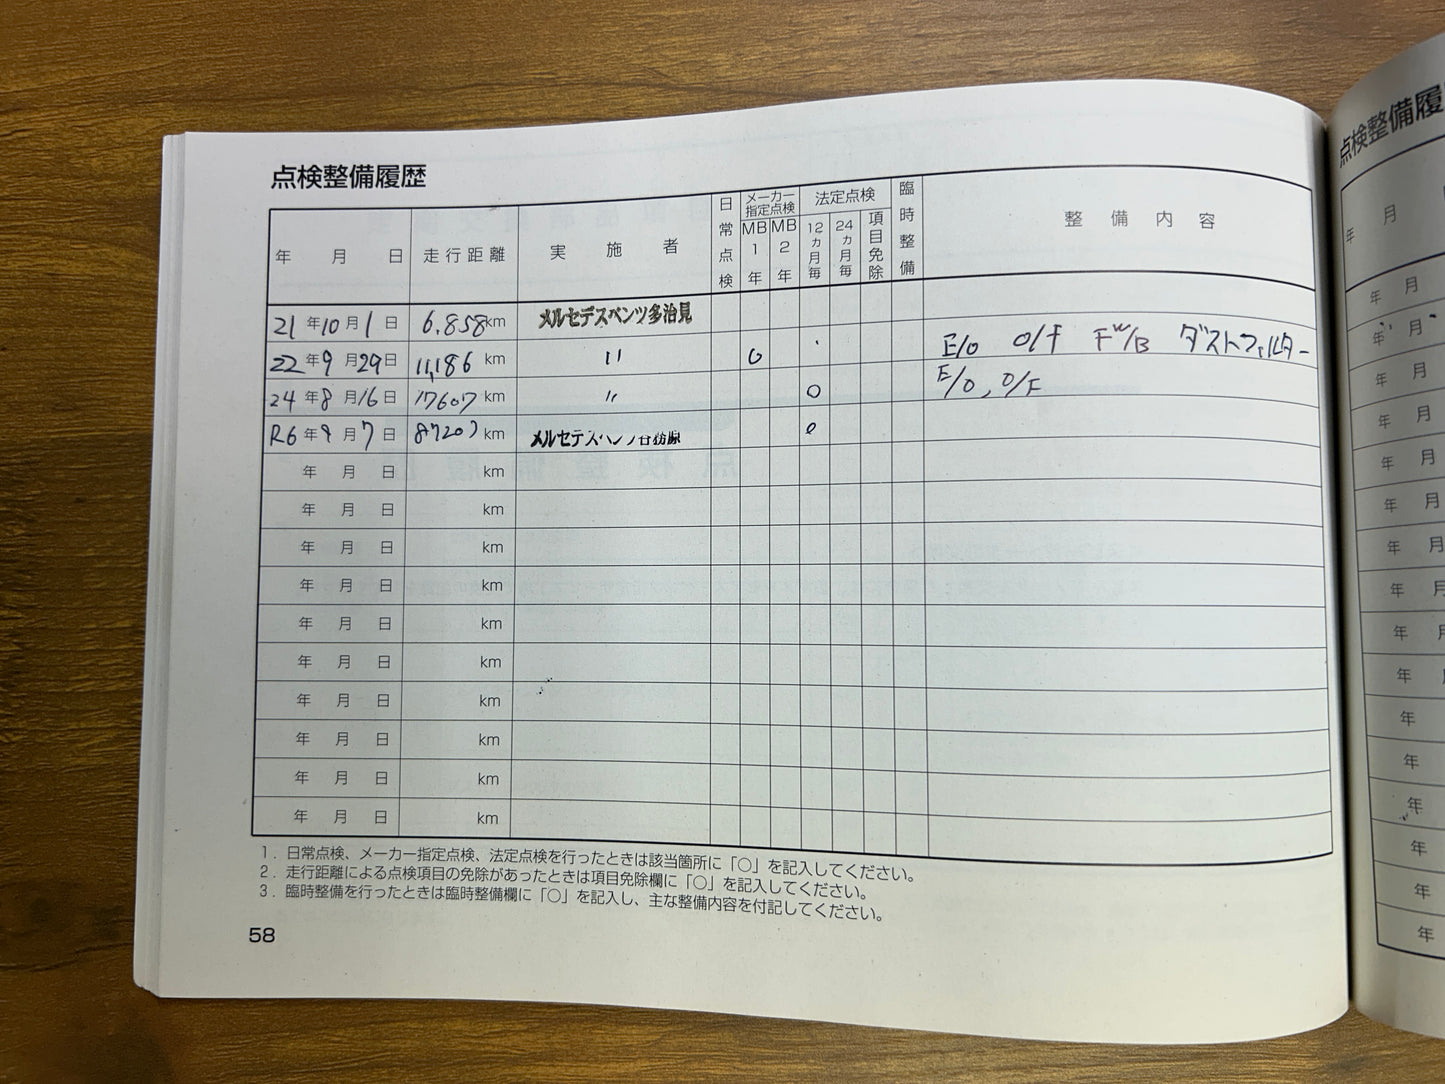 点検整備履歴
年 月 日 走行距離 実施者 日常点検 メーカー指定点検 MB1年 MB2年 法定点検 12ヵ月毎 24ヵ月毎 項目免除 臨時整備 整備内容
21年10月1日 6,858km メルセデスベンツ多治見
22年9月29日 11,186km 〃 ○ E/O O/F Fw/B ダストフィルター
24年8月16日 17607km 〃 ○ E/O, O/F
R6年9月7日 km ○
年 月 日 km
年 月 日 km
年 月 日 km
年 月 日 km
年 月 日 km
年 月 日 km
年 月 日 km
年 月 日 km
年 月 日 km
年 月 日 km
1. 日常点検、メーカー指定点検、法定点検を行ったときは該当箇所に「○」を記入してください。
2. 走行距離による点検項目の免除があったときは項目免除欄に「○」を記入してください。
3. 臨時整備を行ったときは臨時整備欄に「○」を記入し、主な整備内容を付記してください。
58
点検整備履
年 月
年 月
年 月
年 月
年 月
年 月
年 月
年 月
年
年
年
年
年
年
年
年
年